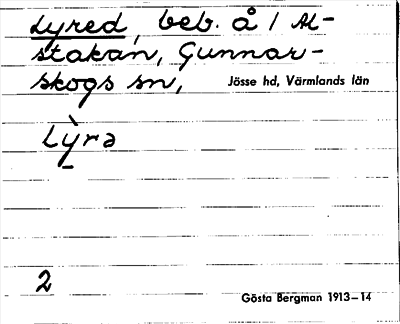 Lyred, beb. å 1 Al-
stakan, Gunnar-
skogs sn,
Jösse hd, Värmlands län
Lỳrə
2
Gösta Bergman 1913–14